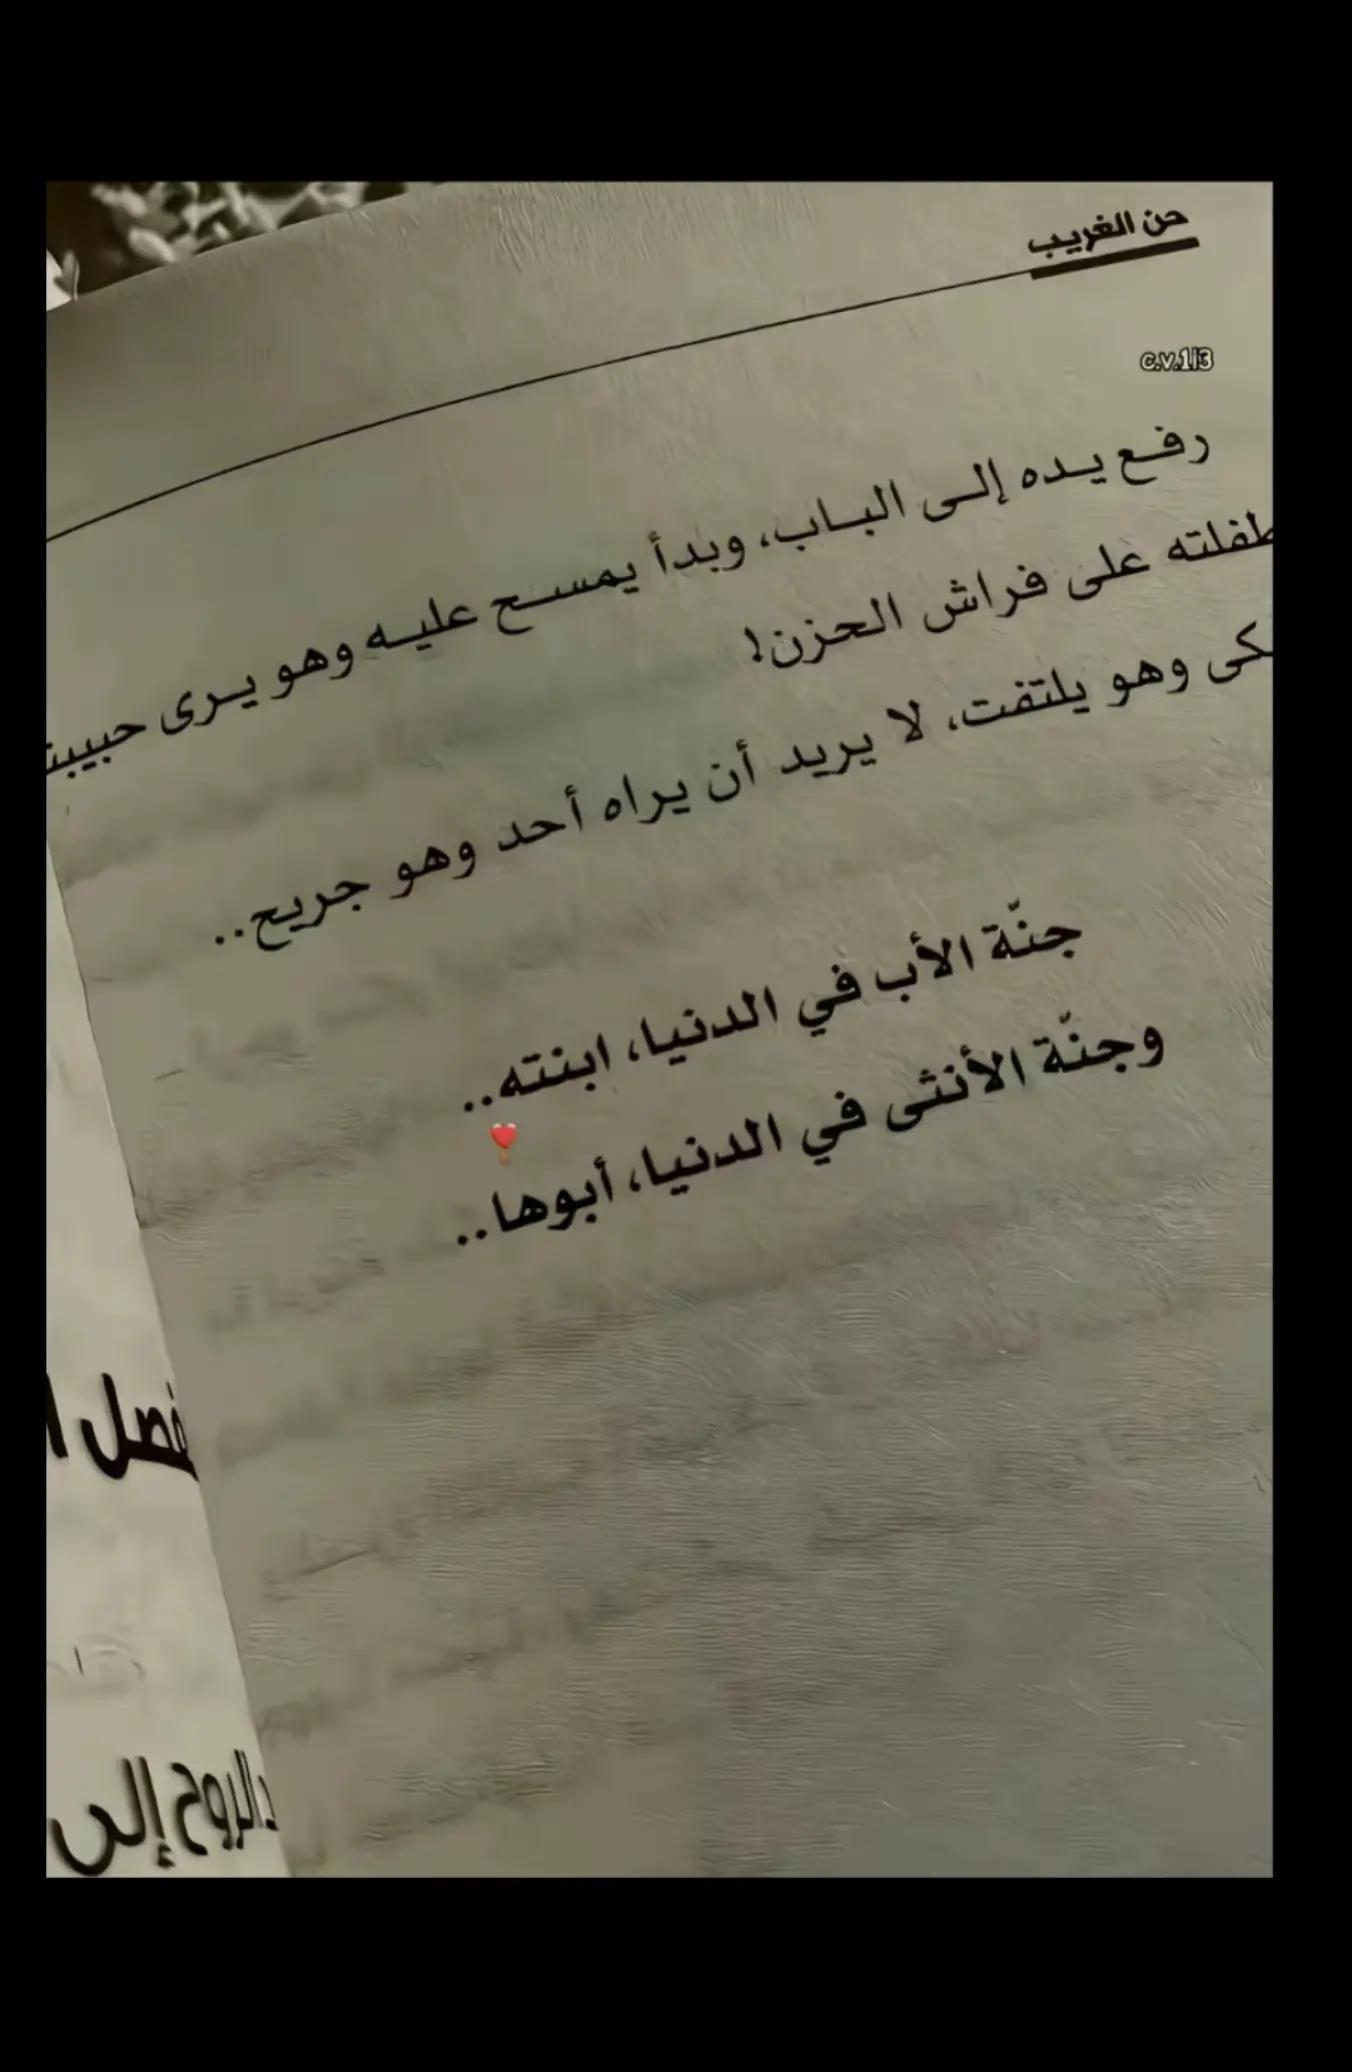 حن الغريب
c.v.1|3
رفع يده إلى الباب، وبدأ يمسح عليه وهو يرى حبيبت
طفلته على فراش الحزن!
كى وهو يلتفت، لا يريد أن يراه أحد وهو جريح..
جنّة الأب في الدنيا، ابنته..
وجنّة الأنثى في الدنيا، أبوها..
فصل ا
الروح إلى